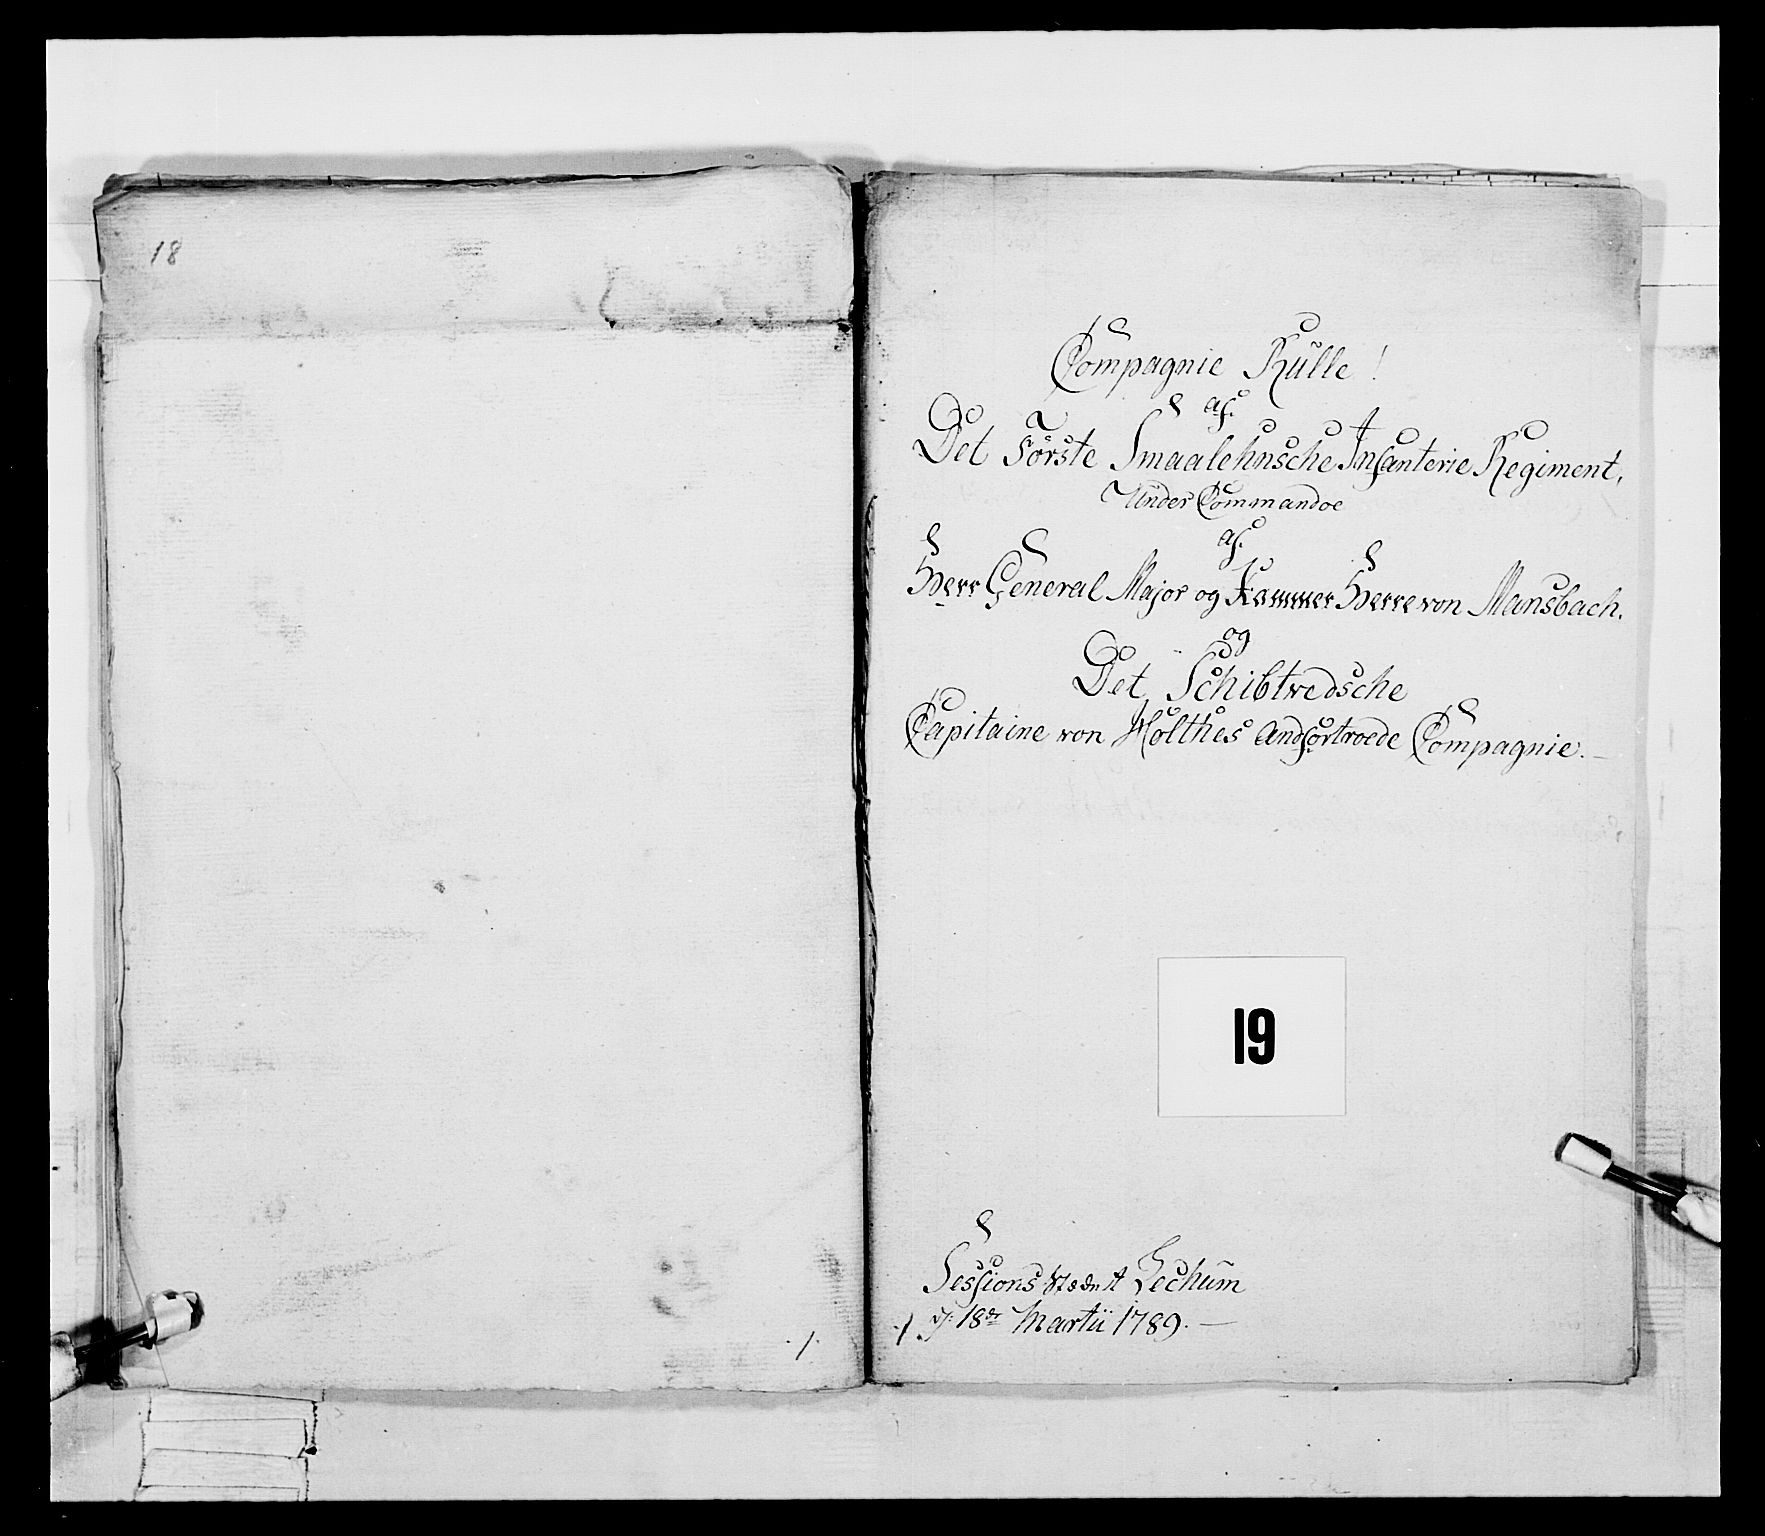 18
Compagnie Rulle!
af
Det Første Smaalehnsche Infanterie Regiment,
Under Commandoe
af
Herr General Major og Kammer Herre von Mansbach.
og
Det Schibtvedsche
Capitaine von Holthes Andfortroede Compagnie.
19
Sessions Stædet Lechum
d: 18de Martii 1789.